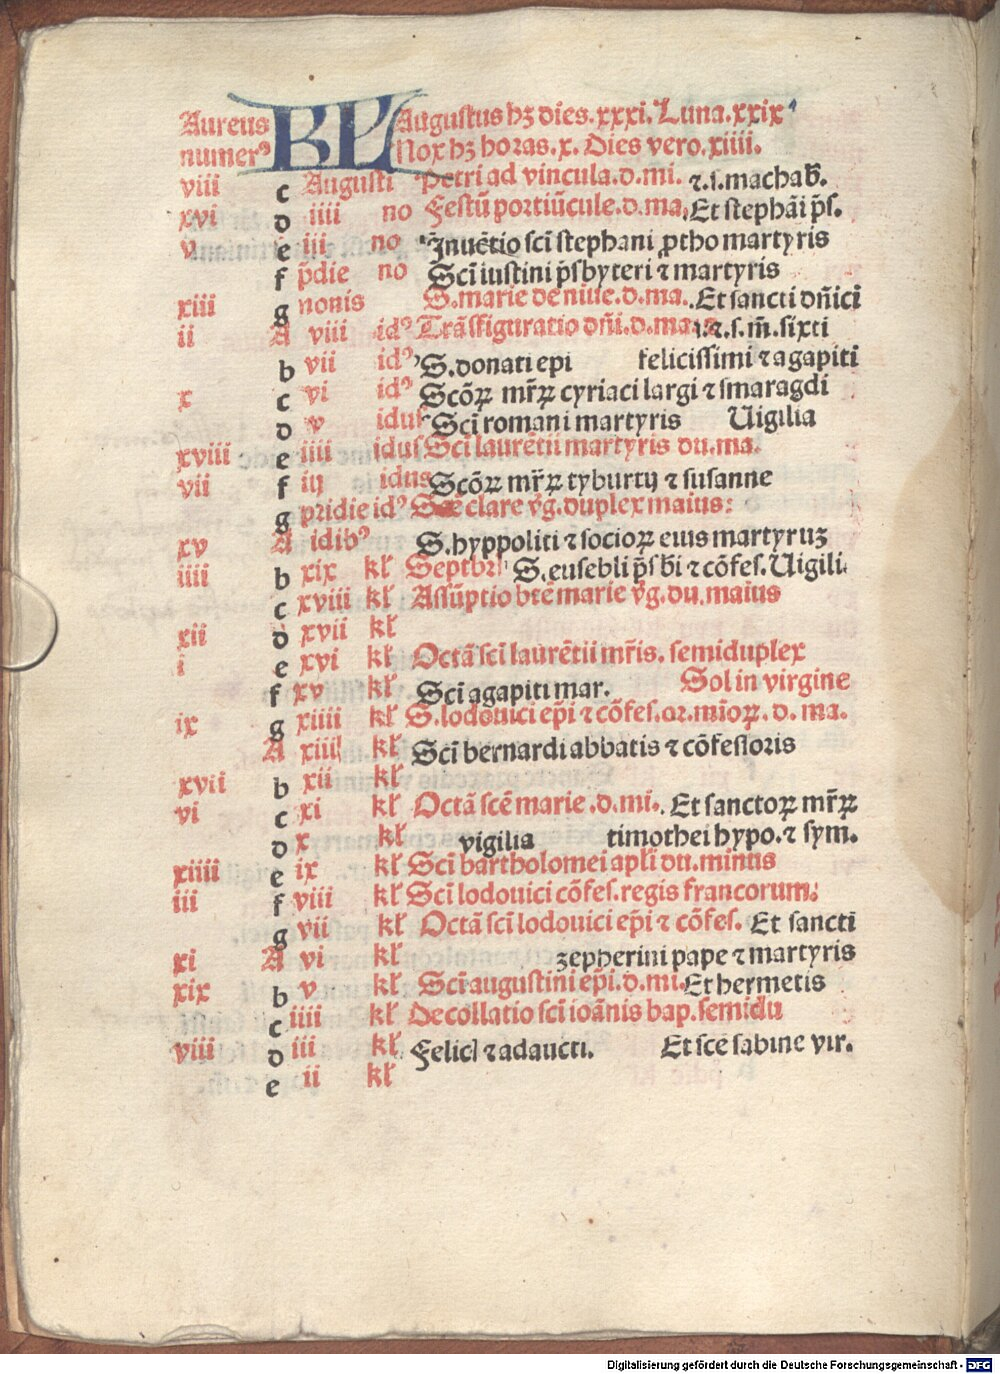 Aureus KL Augustus hꝫ dies. xxxi. Luna. xxix
numerꝰ Nox hꝫ horas. x. Dies vero. xiiii.
viii c Augusti Petri ad vincula. d. mi. ⁊. s. machab̄.
xvi d iiii no Festū portiūcule. d. ma. Et stephāi p̄s.
v e iii no Inuētio scī stephani ꝓtho martyris
f p̄die no Scī iustini p̄sbyteri ⁊ martyris
xiii g nonis S. marie de niue. d. ma. Et sancti dn̄ici
ii A viii idꝰ Trāsfiguratio dn̄i. d. ma. ⁊. s. m̄. sixti
b vii idꝰ S. donati epi felicissimi ⁊ agapiti
x c vi idꝰ Scōꝝ mr̄ꝝ cyriaci largi ⁊ smaragdi
d v idus Scī romani martyris Uigilia
xviii e iiii idus Scī laurētii martyris du. ma.
vii f iij idus Scōꝝ mr̄ꝝ tyburtij ⁊ susanne
g pridie idꝰ Scē clare vḡ. duplex maius:
xv A idibꝰ S. hyppoliti ⁊ socioꝝ eius martyruꝫ
iiii b xix kł Septbris S. eusebii p̄sb̄i ⁊ cōfes. Uigili.
c xviii kł Assūptio btē marie vḡ. du. maius
xii d xvii kł
i e xvi kł Octā scī laurētii mr̄is. semiduplex
f xv kł Scī agapiti mar. Sol in virgine
ix g xiiii kł S. lodouici ep̄i ⁊ cōfes. or. mīoꝝ. d. ma.
A xiii kł Scī bernardi abbatis ⁊ cōfessoris
xvii b xii kł
vi c xi kł Octā scē marie. d. mi. Et sanctoꝝ mr̄ꝝ
d x kł vigilia timothei hypo. ⁊ sym.
xiiii e ix kł Scī bartholomei apl̄i du. minus
iii f viii kł Scī lodouici cōfes. regis francorum.
g vii kł Octā scī lodouici ep̄i ⁊ cōfes. Et sancti
xi A vi kł zepherini pape ⁊ martyris
xix b v kł Scī augustini ep̄i. d. mi. Et hermetis
c iiii kł Decollatio scī ioānis bap. semidu
viii d iii kł Felici ⁊ adaucti. Et scē sabine vir.
e ii kł
Digitalisierung gefördert durch die Deutsche Forschungsgemeinschaft - DFG